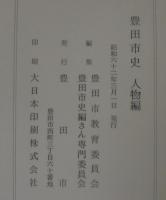 豊田市史 人物編
昭和六十二年三月一日 発行
編集 豊田市教育委員会
豊田市史編さん専門委員会
発行 豊田市
豊田市西町三丁目六十番地
印刷 大日本印刷株式会社